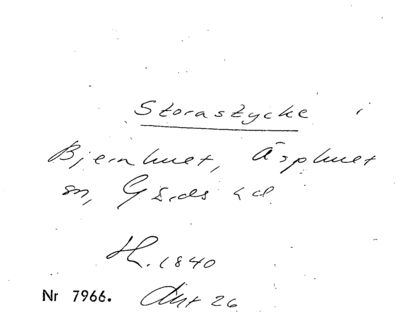 Storastycke i
Bjernhult, Äsphult
sn, Gärds hd
H. 1840
Nr 7966. Akt 26